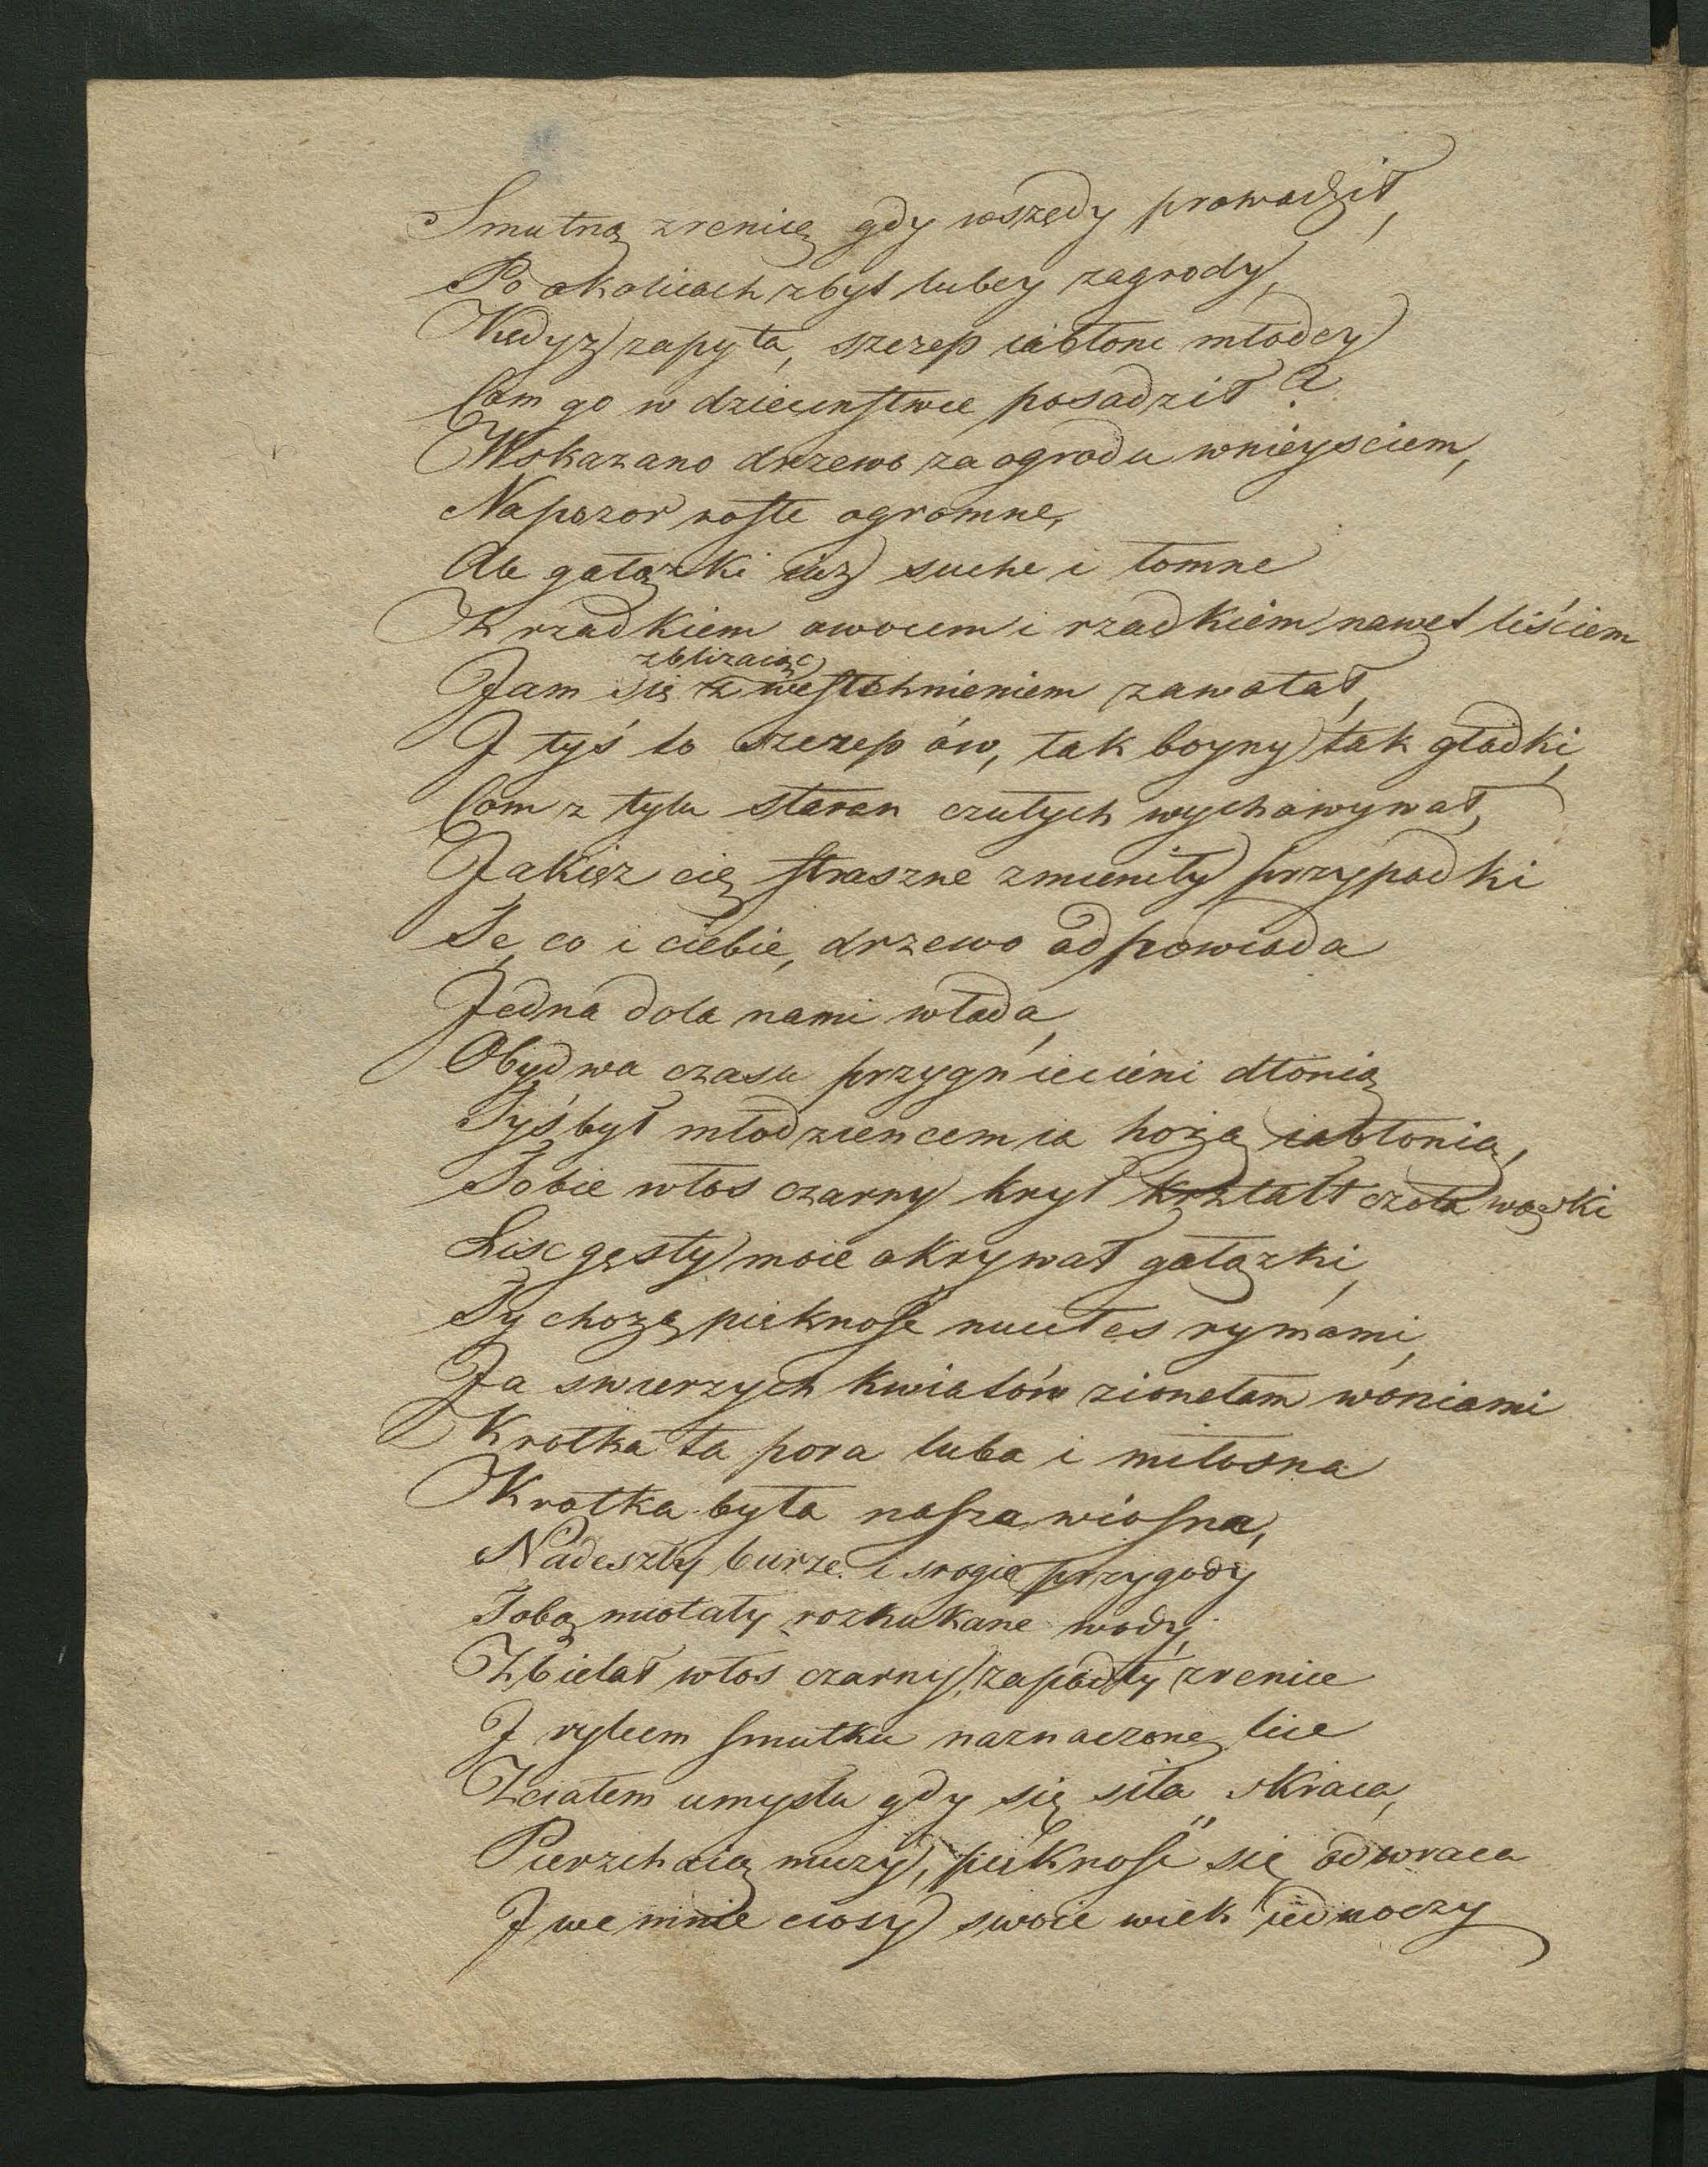 Smutną zrenicę gdy wszędy prowadził,
Po okolicach zbyt lubey zagrody,
Kędyz zapyta, szczep iabłoni młodey
Com go w dziecinstwie posadził?
Wskazano drzewo za ogrodu wnieysciem,
Na pozor rosłe ogromne,
Ale gałązki iuz suche i łomne
Z rzadkiem owocem i rzadkiem nawet liściem
zbliraiąc
Jam się z westchnieniem zawołał,
I tyś to szczep ów, tak boyny tak gładki,
Com z tylu staran czułych wychowywał,
Jakięz cię straszne zmieniły przypadki
Te, co i ciebie, drzewo odpowiada
Jedna dola nami włada,
Obydwa czasu przygnieceni dłonią
Tyś był młodziencem ia hożą iabłonią,
Tobie włos czarny krył kształt czoła wązki
Lisc gęsty moie okrywał gałązki,
Ty chożą pieknosc nuciłes rymami,
Ja swierzych kwiatów zionełam woniami
Krotka ta pora luba i miłosna
Krotka była nasza wiosna,
Nadeszły burze i srogie przygody
Tobą miotały rozhukane wody,
Zbielał włos czarny, zapadły zrenice
I rylcem smutku naznaczone lice
Z ciałem umysłu gdy się siła skraca,
Pierzchaią muzy, pieknosc się odwraca
I we mnie ciosy swoie wiek iednoczy